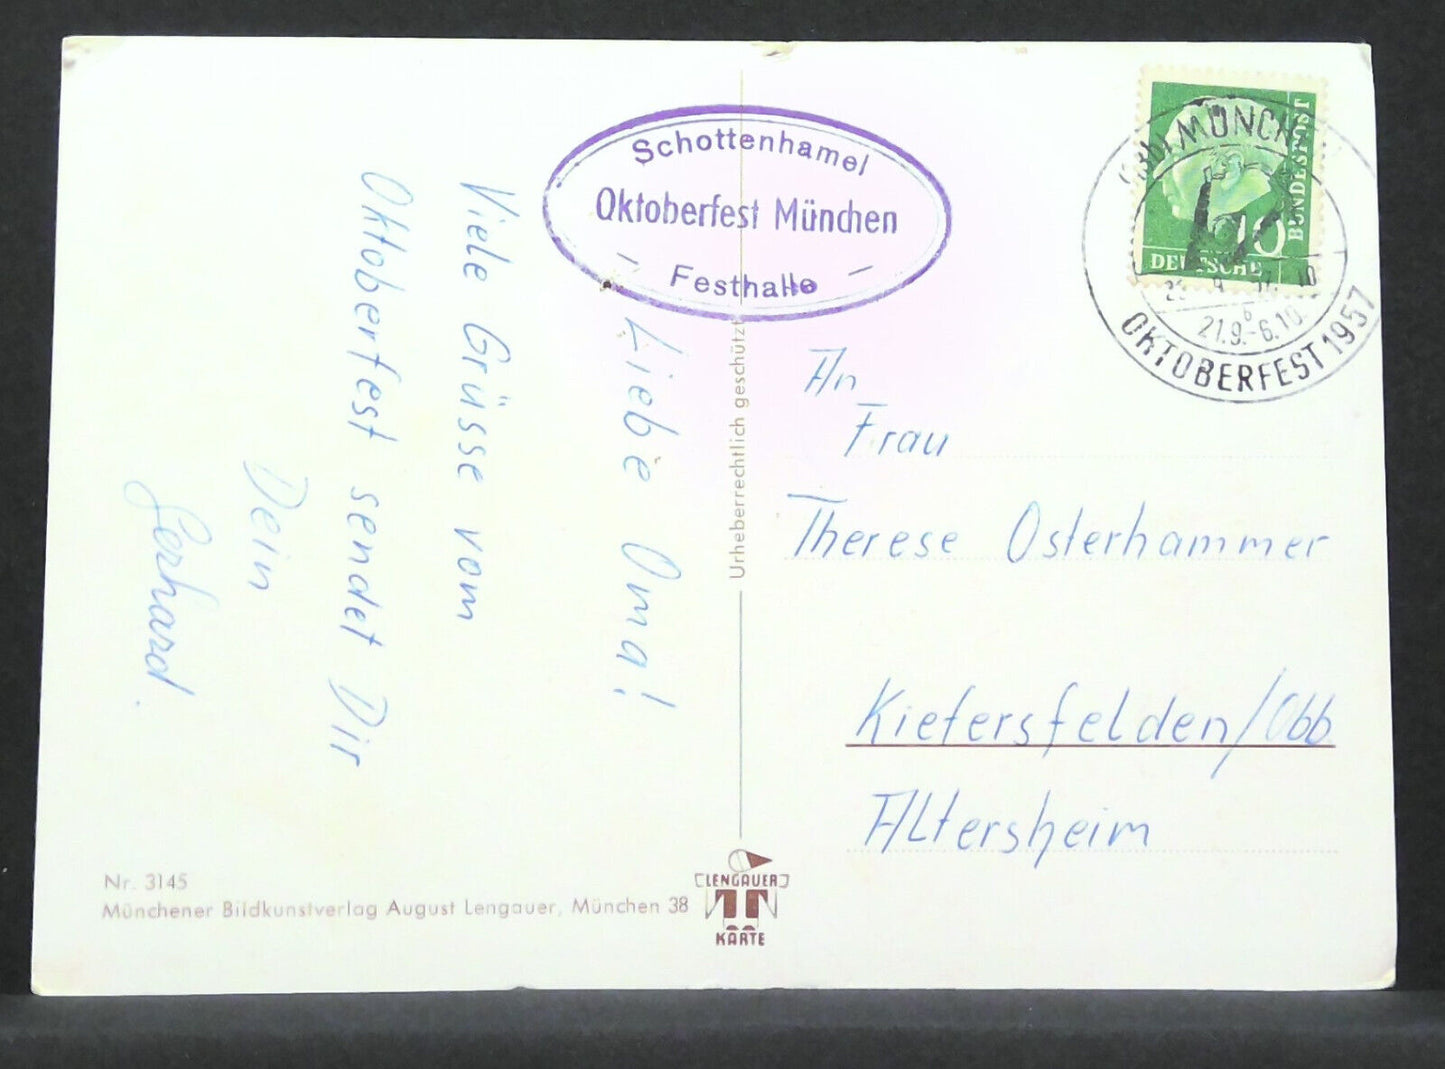 Schottenhamel
Oktoberfest München
– Festhalle –
Liebe Oma!
Viele Grüsse vom
Oktoberfest sendet Dir
Dein
Gerhard.
Urheberrechtlich geschützt
MÜNCH
21.9.-6.10.
OKTOBERFEST 1957
10
DEUTSCHE
BUNDESPOST
An
Frau
Therese Osterhammer
Kiefersfelden/Obb
Altersheim
Nr. 3145
Münchener Bildkunstverlag August Lengauer, München 38
LENGAUER
KARTE